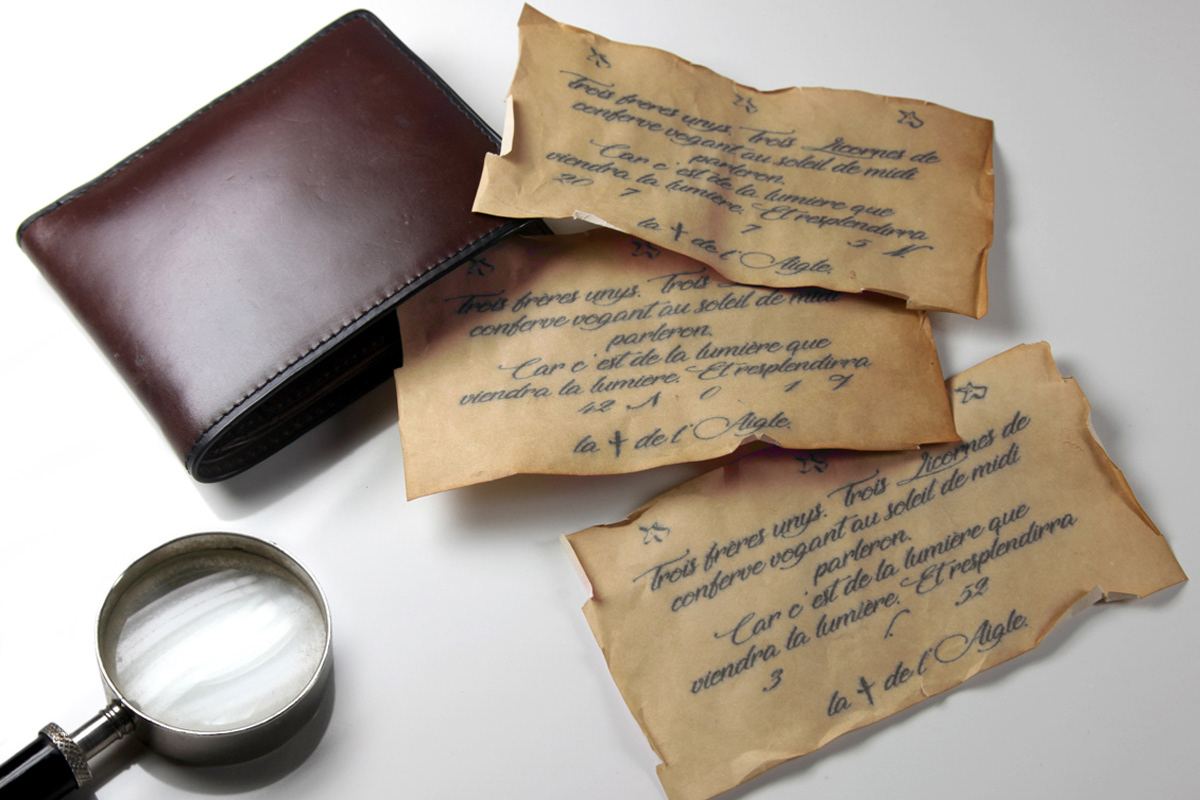 Trois frères unys. Trois Licornes de
conferve vogant au soleil de midi
parleron.
Car c'est de la lumière que
viendra la lumière. Et resplendirra
20 7 7 5 N.
la ✝ de l'Aigle.
Trois frères unys. Trois
conferve vogant au soleil de midi
parleron.
Car c'est de la lumière que
viendra la lumiere. Et resplendirra
42 N 0 1 9
la ✝ de l'Aigle.
Trois frères unys. Trois Licornes de
conferve vogant au soleil de midi
parleron.
Car c'est de la lumière que
viendra la lumière. Et resplendirra
3 52
la ✝ de l'Aigle.